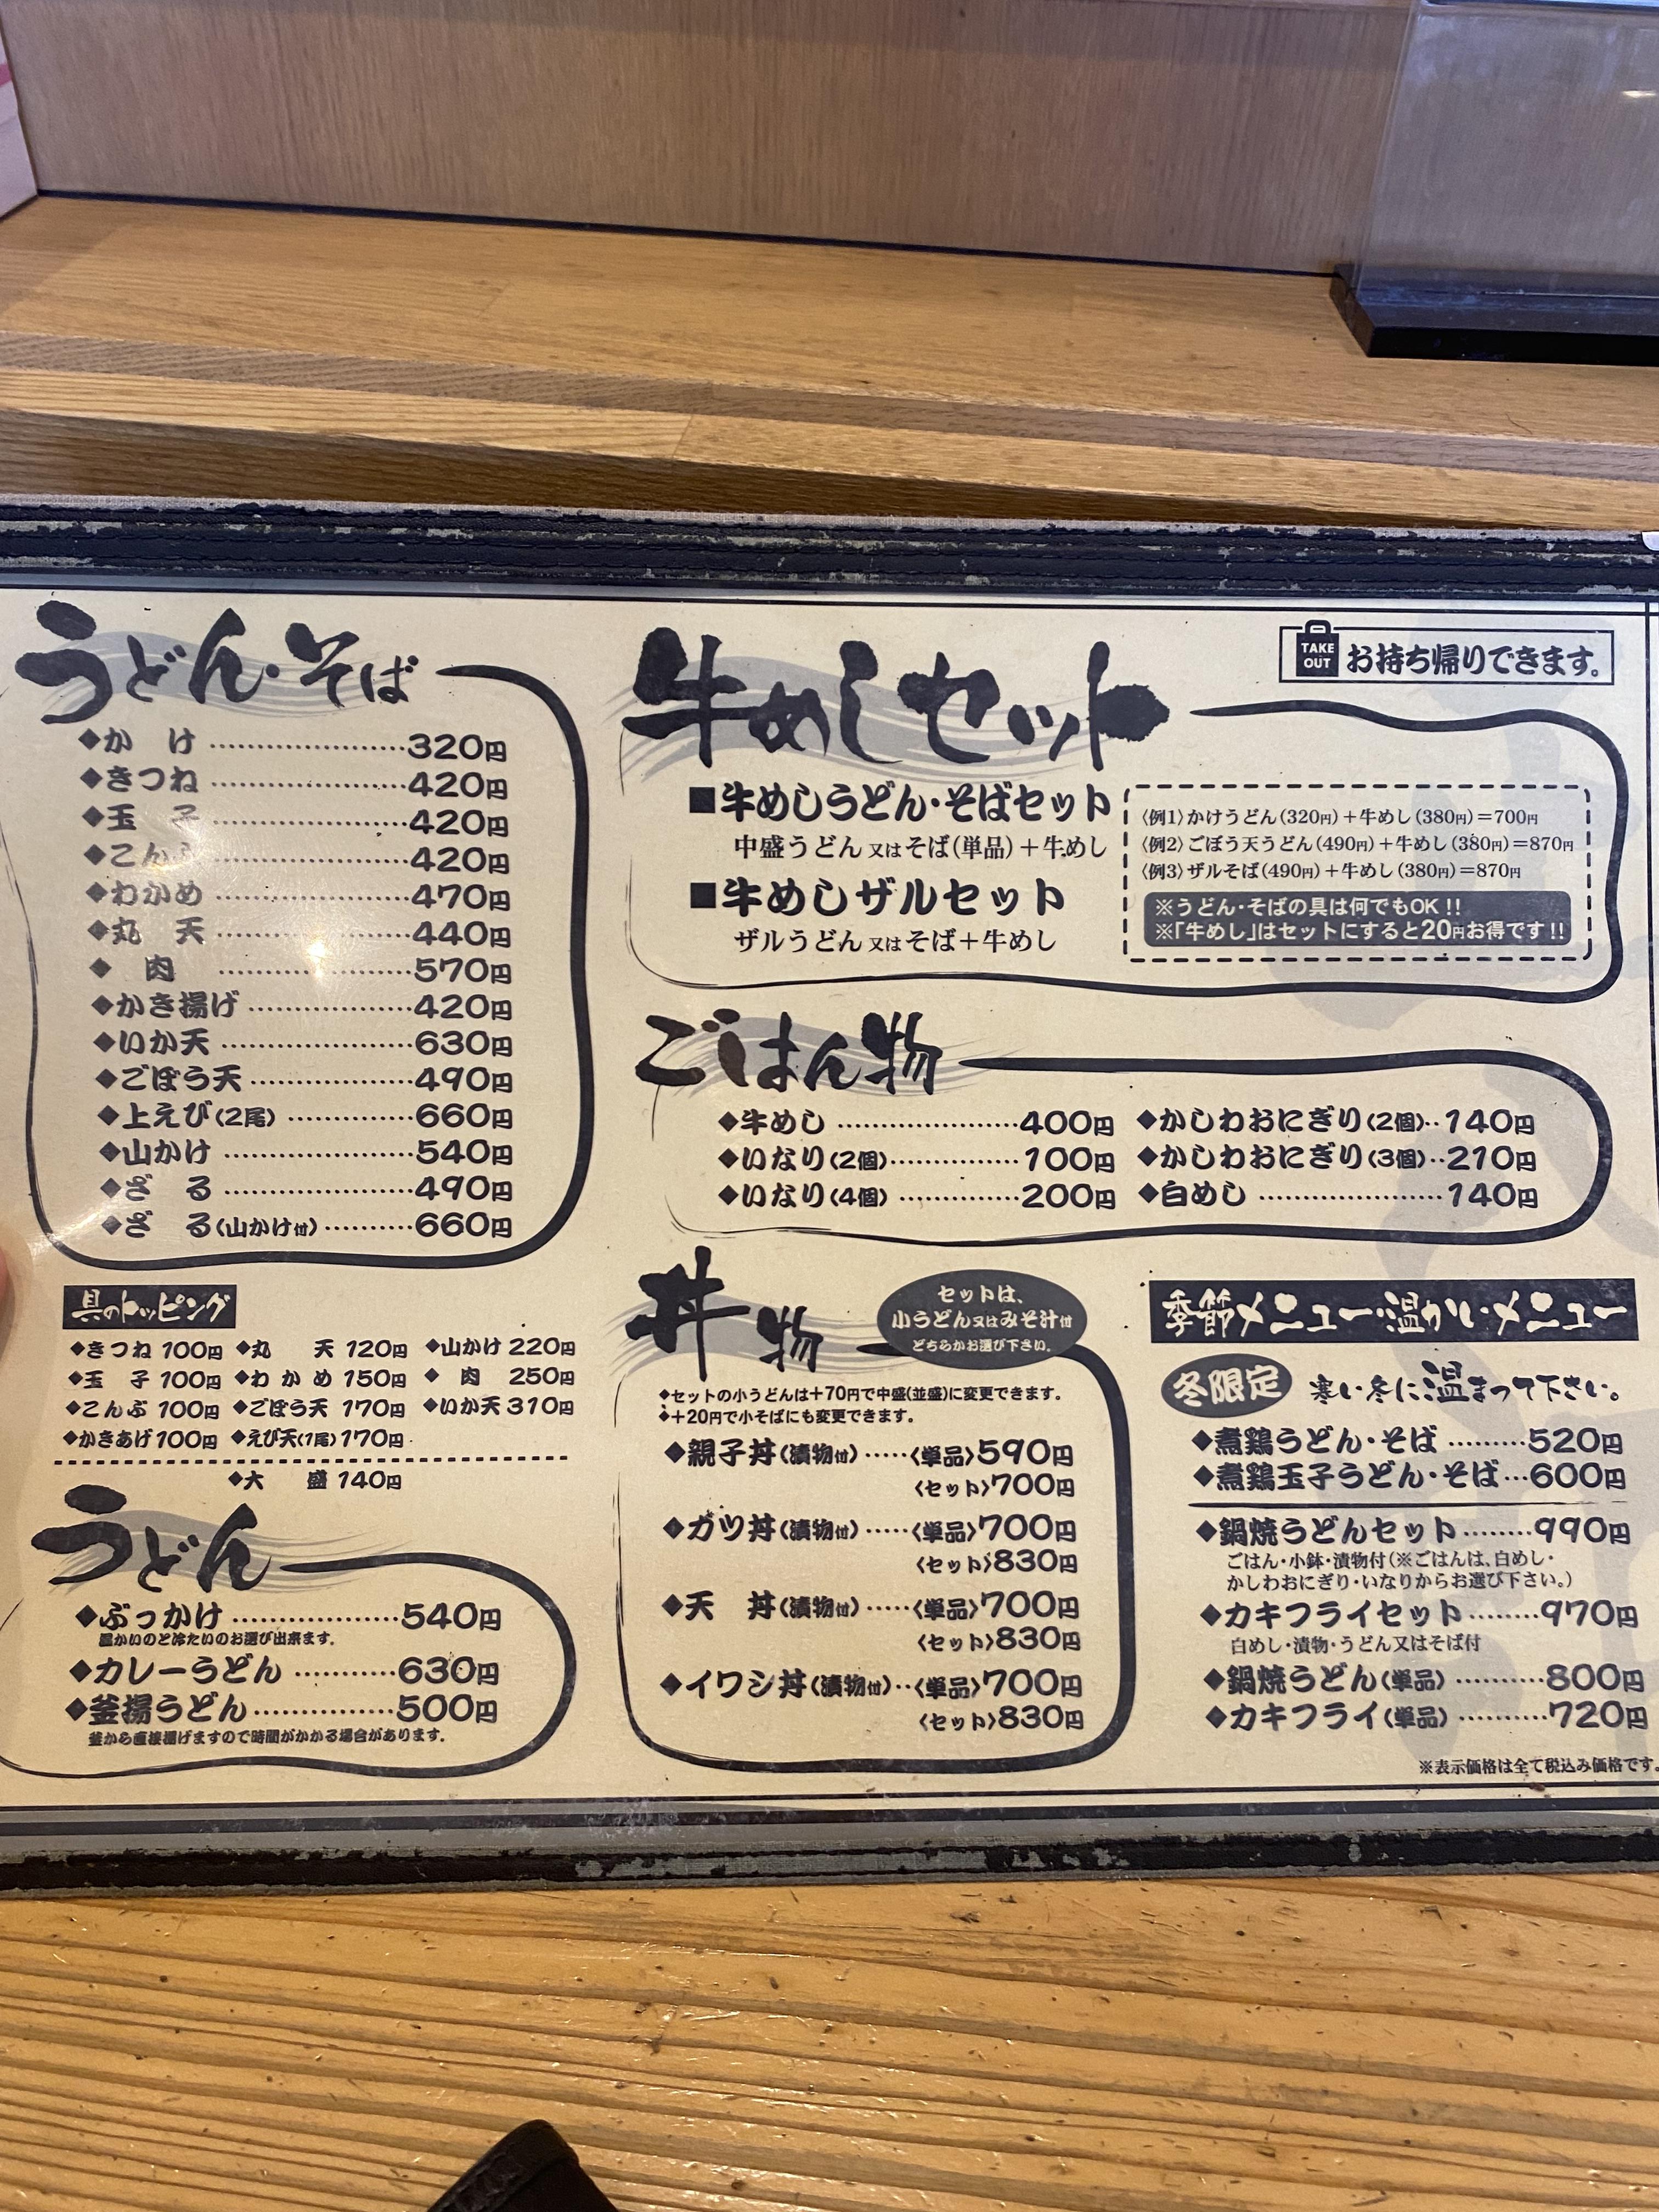 うどん・そば
◆かけ……320円
◆きつね……420円
◆玉子……420円
◆こんぶ……420円
◆わかめ……470円
◆丸天……440円
◆肉……570円
◆かき揚げ……420円
◆いか天……630円
◆ごぼう天……490円
◆上えび(2尾)……660円
◆山かけ……540円
◆ざる……490円
◆ざる(山かけ付)……660円
具のトッピング
◆きつね 100円 ◆丸天 120円 ◆山かけ 220円
◆玉子 100円 ◆わかめ 150円 ◆肉 250円
◆こんぶ 100円 ◆ごぼう天 170円 ◆いか天 310円
◆かきあげ 100円 ◆えび天(1尾) 170円
◆大盛 140円
うどん
◆ぶっかけ……540円
温かいのと冷たいのお選び出来ます。
◆カレーうどん……630円
◆釜揚うどん……500円
釜から直接揚げますので時間がかかる場合があります。
TAKE OUT お持ち帰りできます。
牛めしセット
■牛めしうどん・そばセット
中盛うどん又はそば(単品)+牛めし
■牛めしザルセット
ザルうどん又はそば+牛めし
〈例1〉かけうどん(320円)+牛めし(380円)=700円
〈例2〉ごぼう天うどん(490円)+牛めし(380円)=870円
〈例3〉ザルそば(490円)+牛めし(380円)=870円
※うどん・そばの具は何でもOK!!
※「牛めし」はセットにすると20円お得です!!
ごはん物
◆牛めし……400円
◆いなり(2個)……100円
◆いなり(4個)……200円
◆かしわおにぎり(2個)‥140円
◆かしわおにぎり(3個)‥210円
◆白めし……140円
丼物
セットは、
小うどん又はみそ汁付
どちらかお選び下さい。
◆セットの小うどんは+70円で中盛(並盛)に変更できます。
◆+20円で小そばにも変更できます。
◆親子丼(漬物付)……〈単品〉590円
〈セット〉700円
◆カツ丼(漬物付)……〈単品〉700円
〈セット〉830円
◆天丼(漬物付)……〈単品〉700円
〈セット〉830円
◆イワシ丼(漬物付)‥〈単品〉700円
〈セット〉830円
季節メニュー・温かいメニュー
冬限定 寒い冬に温まって下さい。
◆煮鶏うどん・そば……520円
◆煮鶏玉子うどん・そば…600円
◆鍋焼うどんセット……990円
ごはん・小鉢・漬物付(※ごはんは、白めし・
かしわおにぎり・いなりからお選び下さい。)
◆カキフライセット……970円
白めし・漬物・うどん又はそば付
◆鍋焼うどん(単品)……800円
◆カキフライ(単品)……720円
※表示価格は全て税込み価格です。